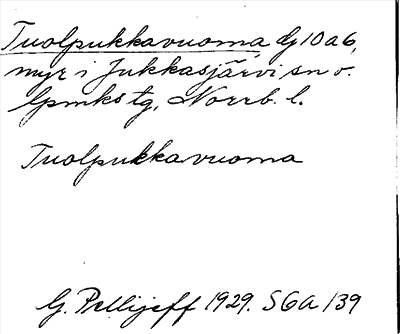 Tuolpukkavuoma, dg 10 a 6,
myr i Jukkasjärvi sn o.
lpmkstg, Norrb. l.
Tuolpukkavuoma
G. Pellijeff 1929. SGA 139